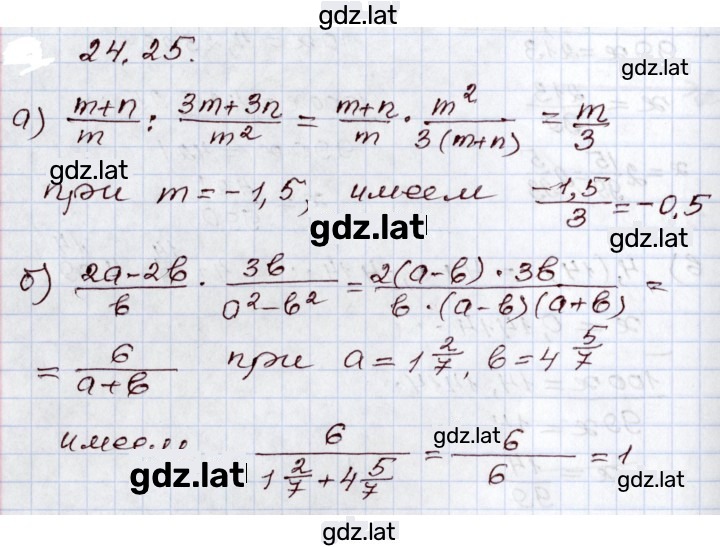 gdz.lat
24.25.
gdz.lat
а) (m+n)/m : (3m+3n)/m² = (m+n)/m · m²/(3(m+n)) = m/3
gdz.lat
при m = -1,5, имеем -1,5/3 = -0,5
gdz.lat
gdz.lat
б) (2a-2b)/b · 3b/(a²-b²) = (2(a-b)·3b)/(b·(a-b)(a+b)) =
= 6/(a+b) при a = 1 2/7, b = 4 5/7
имее... 6/(1 2/7 + 4 5/7) = 6/6 = 1
gdz.lat
gdz.lat
gdz.lat
gdz.lat